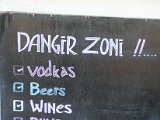 DANGER ZONE !!....
VODKAS
BEERS
WINES